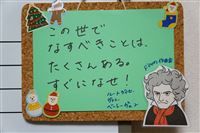 この世で
なすべきことは、
たくさんある。
すぐになせ!
ドイツの作曲家
ルートヴィヒ
ヴァン
ベートーヴェン